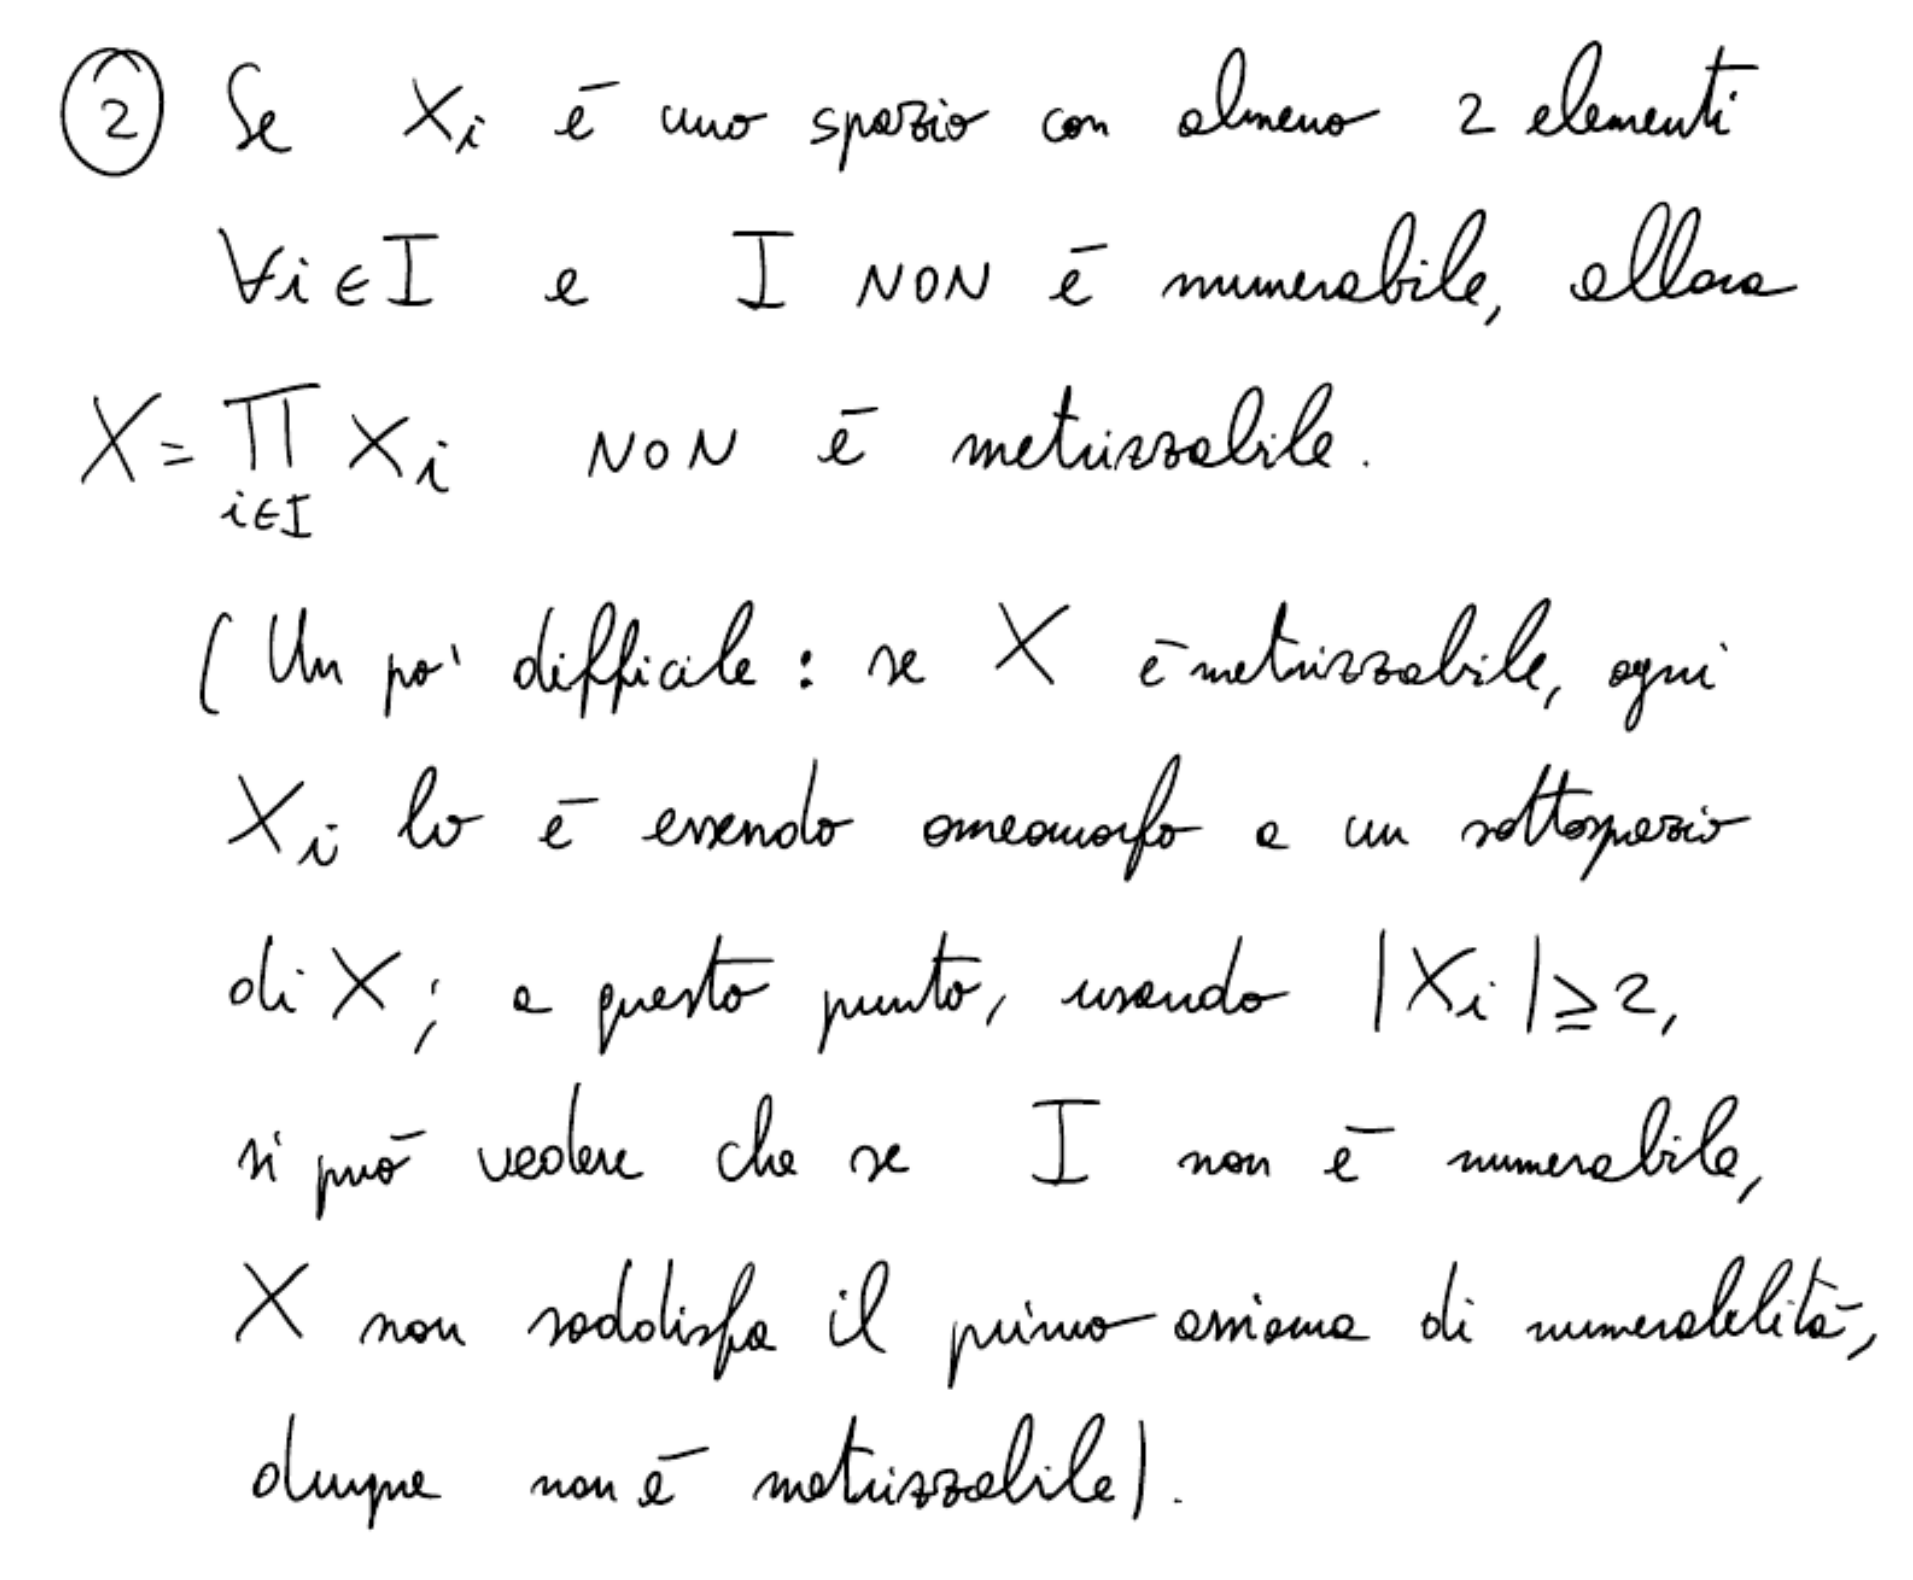 ② Se Xi è uno spazio con almeno 2 elementi
∀i∈I e I NON è numerabile, allora
X = ∏ Xi NON è metrizzabile.
i∈I
(Un po' difficile: se X è metrizzabile, ogni
Xi lo è essendo omeomorfo a un sottospazio
di X; a questo punto, usando |Xi|≥2,
si può vedere che se I non è numerabile,
X non soddisfa il primo assioma di numerabilità,
dunque non è metrizzabile).